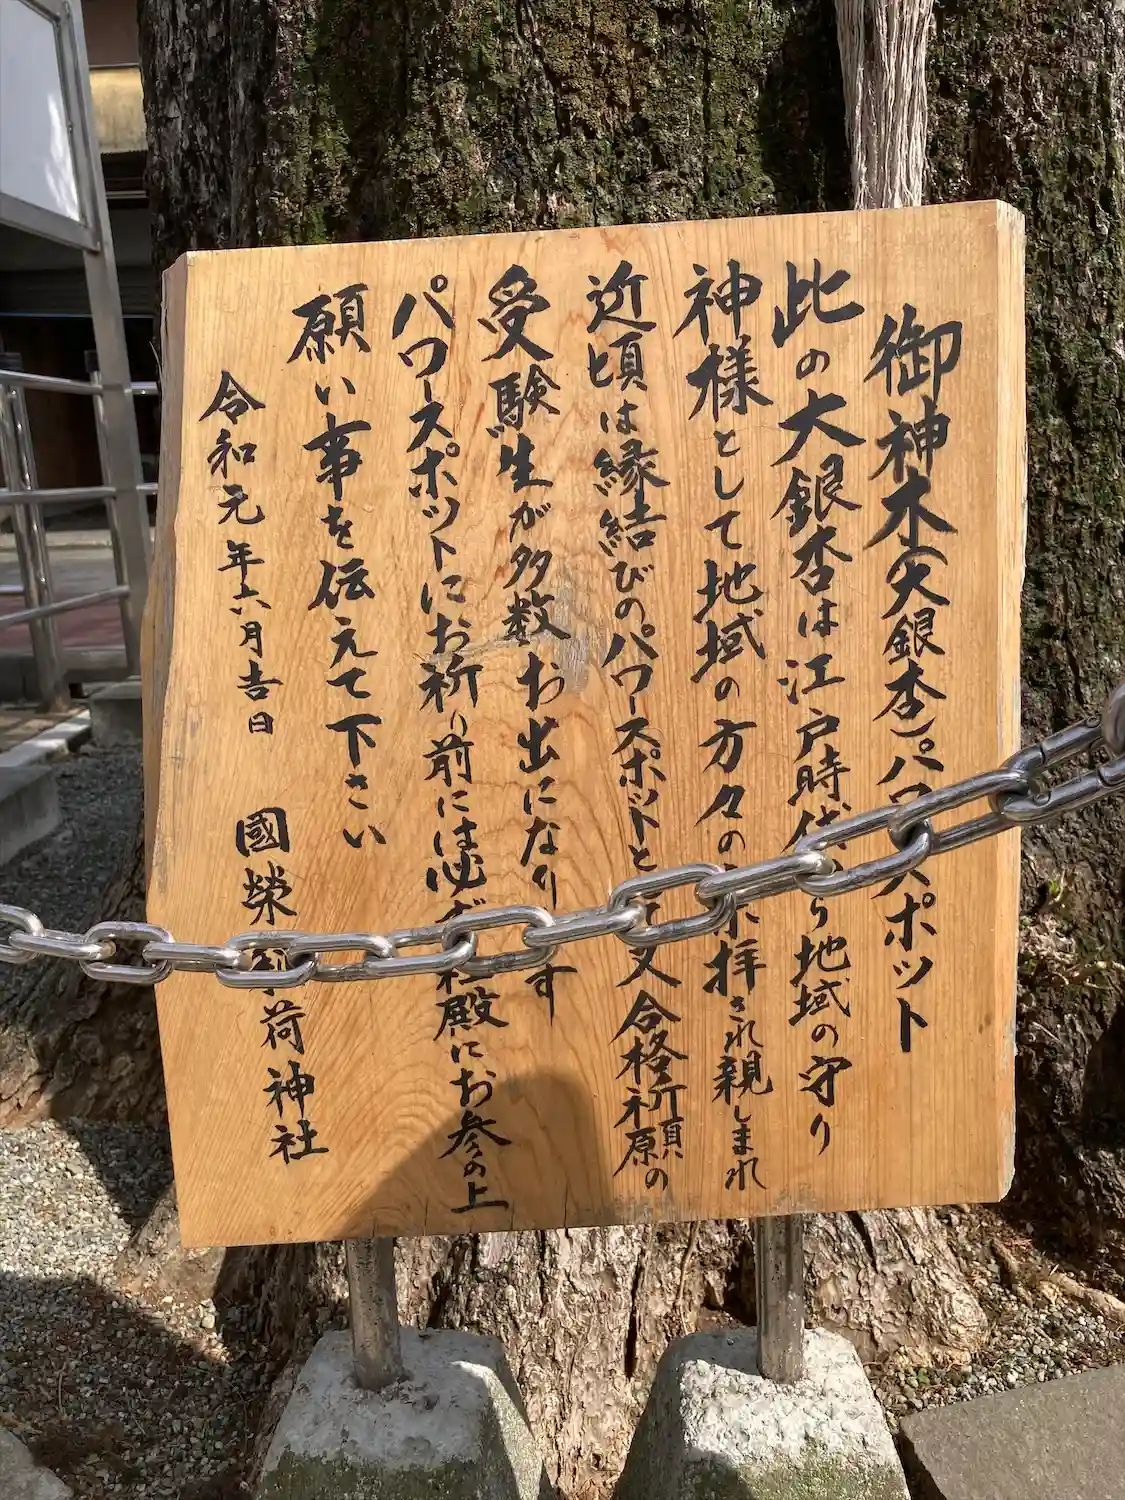 御神木(大銀杏)パワースポット
此の大銀杏は江戸時代から地域の守り
神様として地域の方々の崇拝され親しまれ
近頃は縁結びのパワースポットとして又合格祈願の
受験生が多数お出になります
パワースポットにお祈り前には必ず社殿にお参の上
願い事を伝えて下さい
令和元年六月吉日 國榮稲荷神社